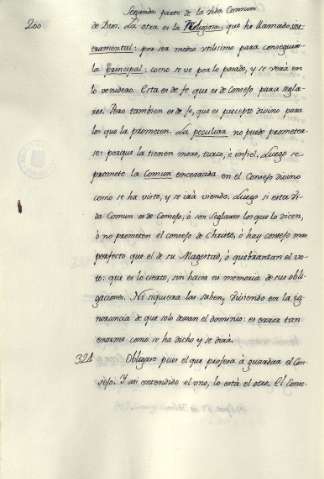 Segunda parte de la Vida Comun
200
de Dios. La otra es la Religiosa, que ha llamado ins-
tramental: por ser medio utilisimo para conseguir
la Principal: como se ve por lo parado, y se verá en
lo venidero. Esta es de fe, que es de Consejo para segla-
res. Pero tambien es de fe, que es precepto divino para
los que la prometen. La peculiar no puede prometer-
se: porque la tienen moro, turco, è infiel. Luego se
promete la Comun encerrada en el Consejo divino
como se ha visto, y se irá viendo. Luego si esta Vi-
da Comun es de Consejo, ò son Seglares los que la dicen,
ò no prometen el consejo de Christo, ò hay consejo mas
perfecto que el de su Magestad, ò quebrantan el vo-
to: que es lo cierto, sin hacer ni memoria de sus obli-
gaciones. Ni siquiera las saben, viviendo en la ig-
norancia de que solo deman el dominio: es error tan
enorme como se ha dicho y se dirá.
324 Obligase pues el que profesa á guardar el Con-
sejo. Y asi entendido el uno, lo está el otro. El Conse-